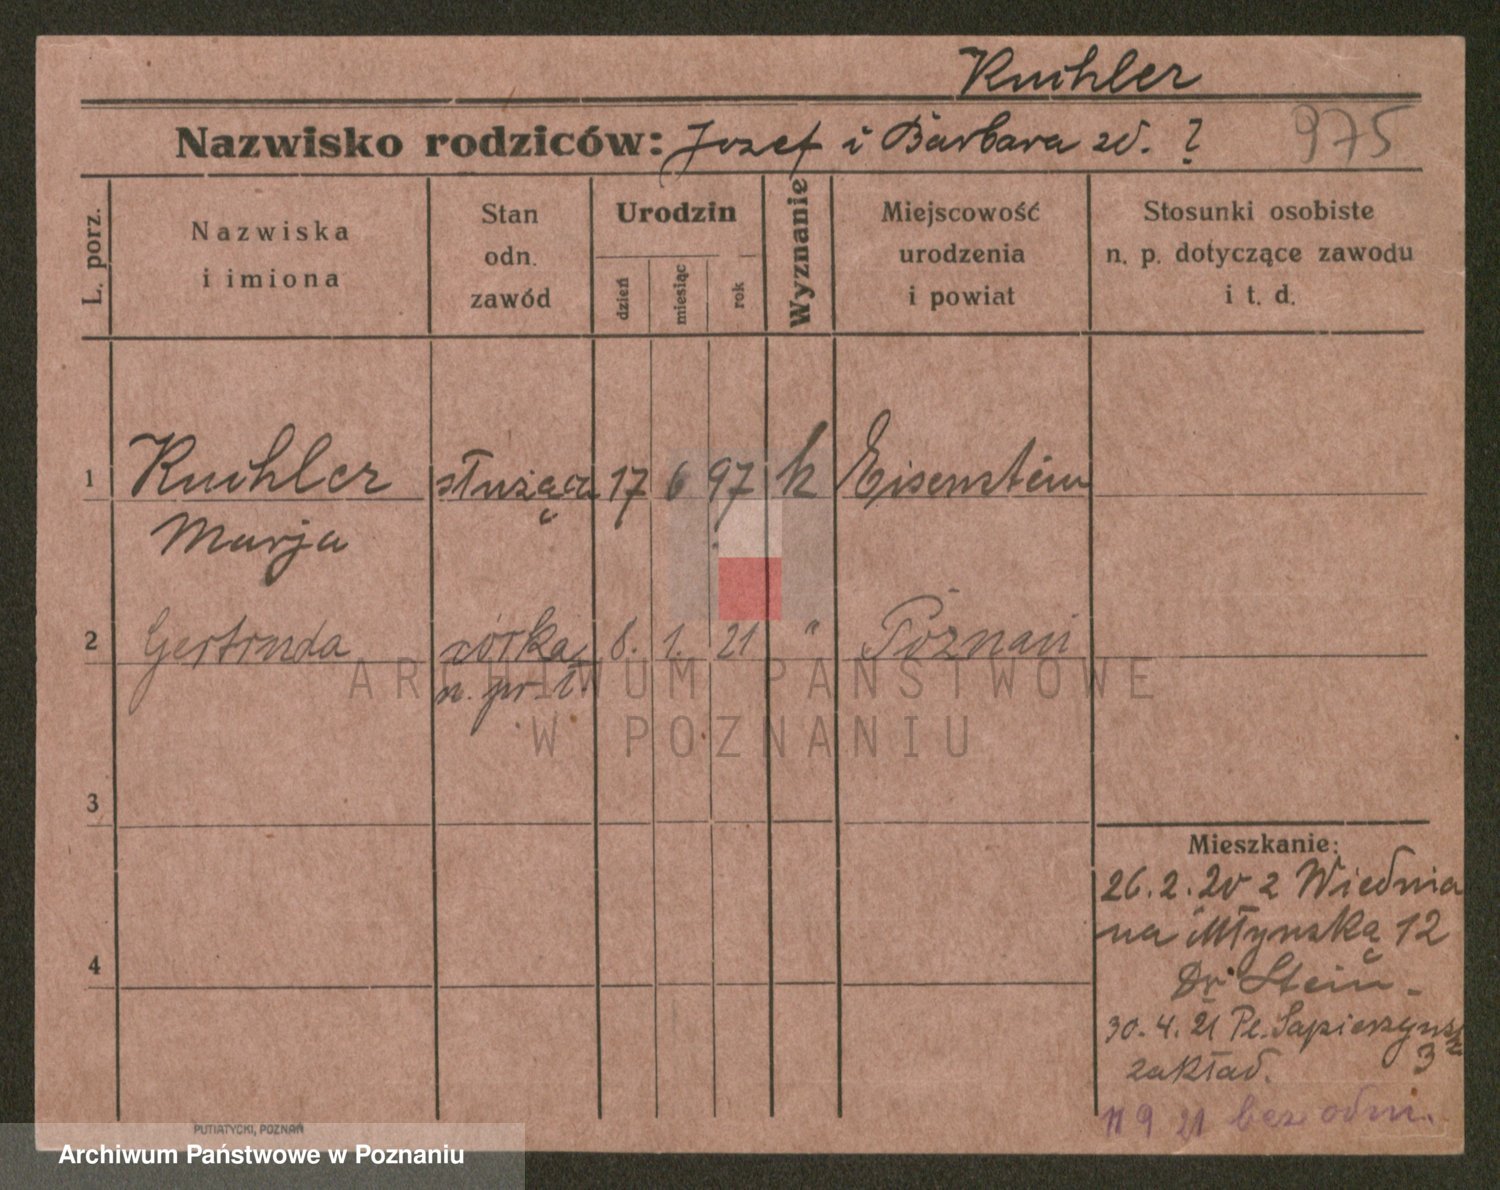 Kuchler
Nazwisko rodziców: Jozef i Barbara zd. ?
975
L. porz.
Nazwiska
i imiona
Stan
odn.
zawód
Urodzin
dzień
miesiąc
rok
Wyznanie
Miejscowość
urodzenia
i powiat
Stosunki osobiste
n. p. dotyczące zawodu
i t. d.
1 Kuchler służąca 17 6 97 k Eisenstein
Marja
2 Gertruda córka 8. 1. 21 " Poznań
n. pr. ł.
ARCHIWUM PAŃSTWOWE
W POZNANIU
3
4
Mieszkanie:
26.2.20 z Wiednia
na Młyńską 12
Dr Stein.
30.4.21 Pl. Sapieżyńsk
3
zakład.
11 9 21 bez odm.
PUTIATYCKI, POZNAŃ
Archiwum Państwowe w Poznaniu